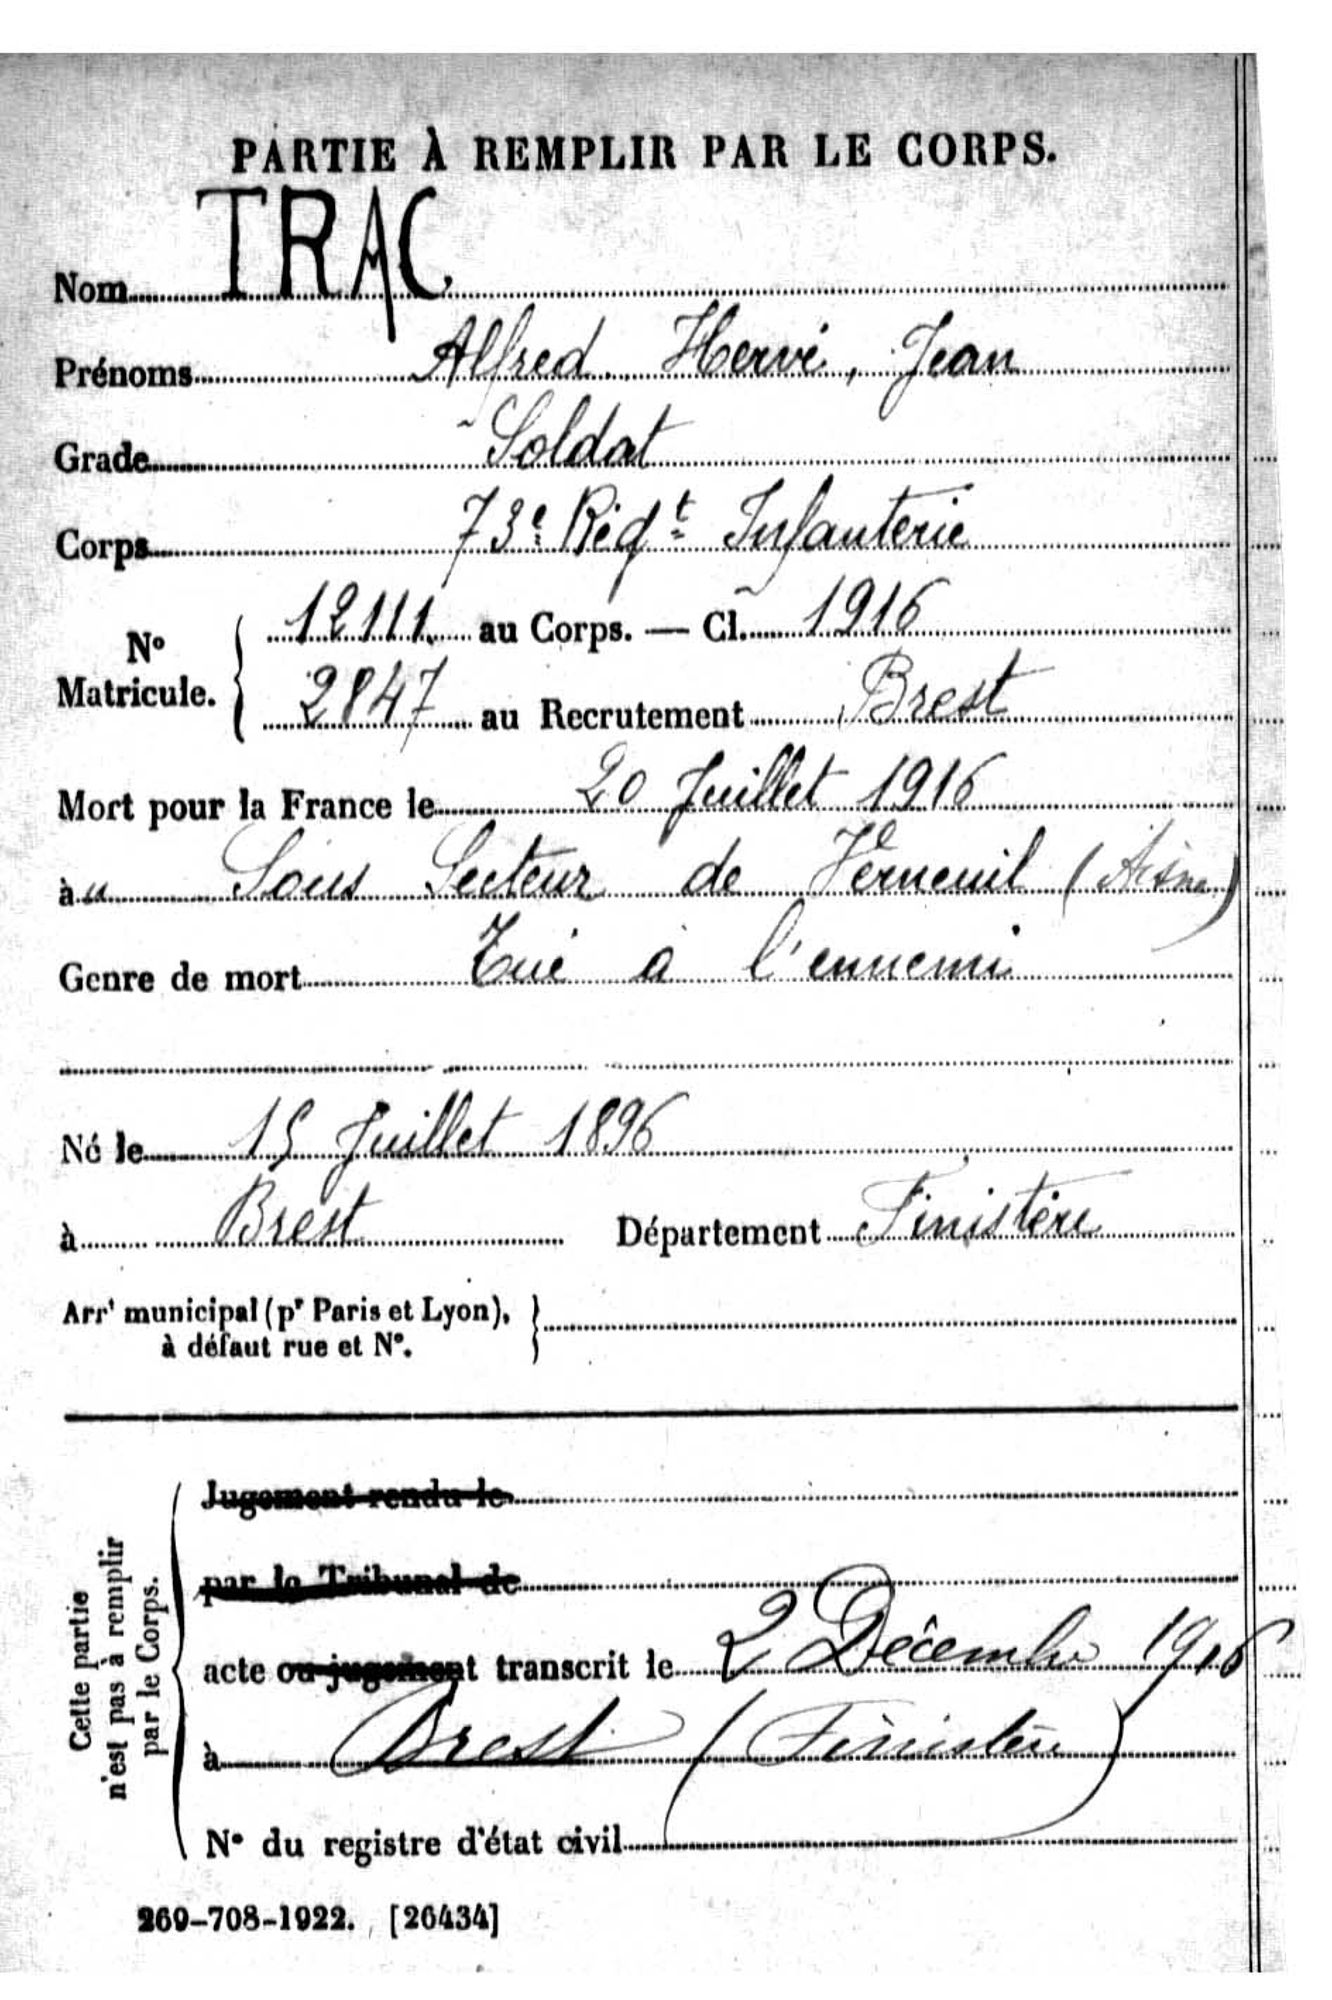 PARTIE À REMPLIR PAR LE CORPS.
Nom TRAC
Prénoms Alfred, Hervé, Jean
Grade Soldat
Corps 73e Régt Infanterie
No Matricule. 12111. au Corps. — Cl. 1916
2847 au Recrutement Brest
Mort pour la France le 20 Juillet 1916
àu Sous Secteur de Verneuil (Aisne)
Genre de mort Tué à l'ennemi
Né le 15 Juillet 1896
à Brest Département Finistère
Arrt municipal (pr Paris et Lyon),
à défaut rue et No.
Cette partie
n'est pas à remplir
par le Corps.
Jugement rendu le
par le Tribunal de
acte ou jugement transcrit le 2 Décembre 1916
à Brest (Finistère)
No du registre d'état civil
269-708-1922. [26434]